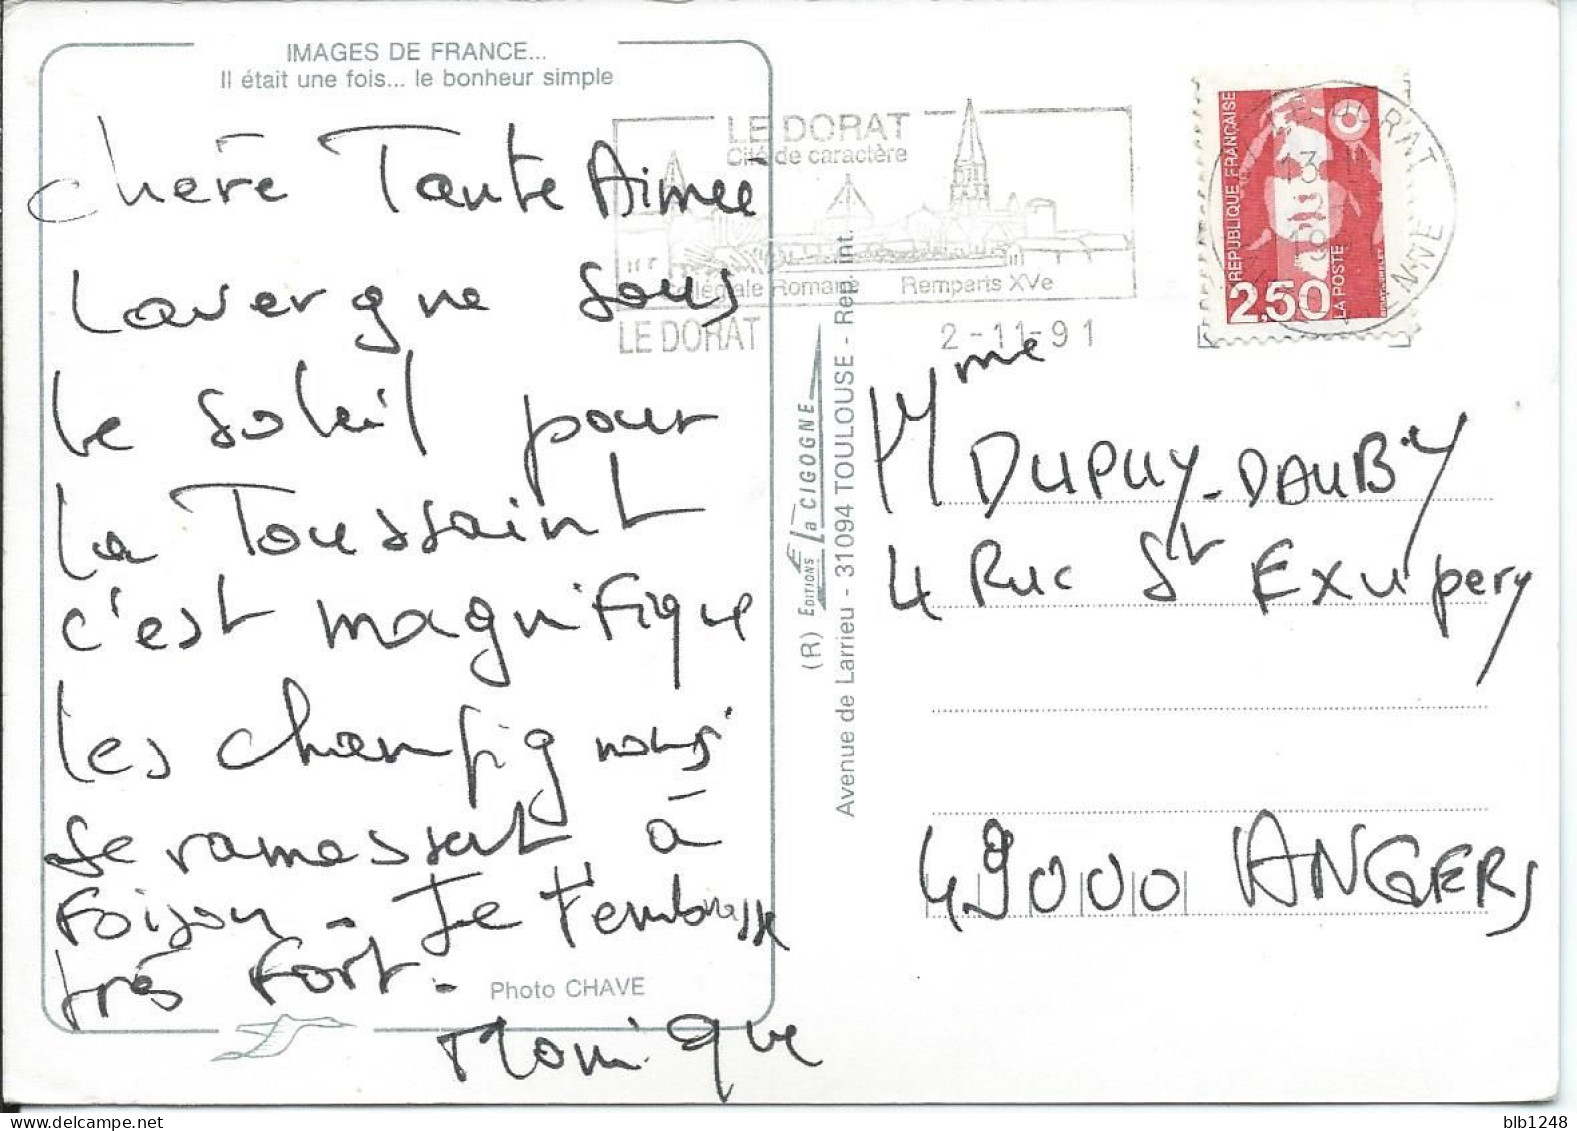 IMAGES DE FRANCE...
Il était une fois... le bonheur simple
chère Tante Aimée
Lavergne sous
le soleil pour
la Toussaint
c'est magnifique
les champignons
se ramassent à
foison - Je t'embrasse
très fort -
Monique
Photo CHAVE
LE DORAT
Cité de caractère
Collégiale Romane Remparts XVe
LE DORAT 2-11-91
RÉPUBLIQUE FRANÇAISE
2,50
LA POSTE
LE DORAT
13 H
(R) EDITIONS La CIGOGNE
Avenue de Larrieu - 31094 TOULOUSE - Rep. int.
Mme DUPUY-DAUBY
4 Rue St Exupery
49000 ANGERS
blb1248